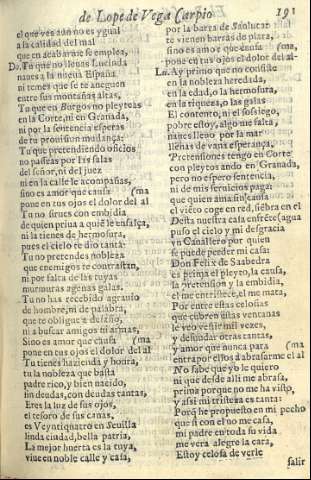 de Lope de Vega Carpio
191
el que ves aun no es ygual
a la calidad del mal
que en acabarme se emplea,
Do. Tu que no lleuas Lucinda
naues a la nueua España
ni temes que se te aneguen
entre sus montañas altas,
Tu que en Burgos no pleyteas
en la Corte, ni en Granada,
ni por la sentencia esperas
de tu prouision mudança:
Tu que pretendiendo oficios
no paseas por las salas
del señor, ni del juez
ni en la calle le acompañas,
sino es amor que causa (ma
pone en tus ojos el dolor del al
Tu no sirues con embidia
de quien priua a quiẽ le ensalça,
ni la tienes de hermosura,
pues el cielo te dio tanta:
Tu no pretendes nobleza
que enemigos te contrastan,
ni por falta de las tuyas
murmuras agenas galas.
Tu no has recebido agrauio
de hombre, ni de palabra,
que te obligue a
ni a buscar amigos ni armas,
Sino es amor que causa (ma
pone en tus ojos el dolor del al
Tu tienes hazienda y honra,
tu la nobleza que basta
padre rico, y bien nacido,
sin deudas, con deudas tantas,
Eres la luz de sus ojos,
el tesoro de sus canas,
es Veyntiquatro en Seuilla
linda ciudad, bella patria,
La mejor huerta es la tuya,
viue en noble calle y casa,
por la barra de Sanlucar
te vienen barras de plata,
sino es amor que causa (ma,
pone en tus ojos el dolor del al-
Lu. Ay primo que no consiste
en la nobleza heredada,
en la edad, o la hermosura,
en la riqueza, o las galas
El contento, ni el sosiego,
pobre estoy, algo me falta,
naues lleuo por la mar
llenas de vana esperança,
Pretensiones tengo en Corte
con pleytos ando en Granada,
pero no espero sentencia,
ni de mis seruicios paga:
que quien ama sin causa
el viẽto coge en red, siẽbra en el
Desta nuestra casa enfrẽte (agua
puso el cielo y mi desgracia
vn Cauallero por quien
se puede perder mi casa:
Don Felix de Saabedra
es prima el pleyto, la causa,
la pretension y la embidia,
el me entristece, el me mata,
Por entre estas celosias
que cubren estas ventanas
le veo vestir mil vezes,
y desnudar otras tantas,
y amor que nunca para (ma
entra por ellos a abrasarme el al
No sabe que yo le quiero
ni que desde alli me abrasa,
prima porque no me ha visto,
y assi mi tristeza es tanta:
Porq̃ he propuesto en mi pecho
que si con el no me casa,
mi padre en toda su vida
me vera alegre la cara,
Estoy celosa de verle
salir